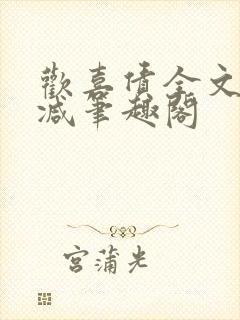 歡喜債全文
减筆趣閣
宮蒲光